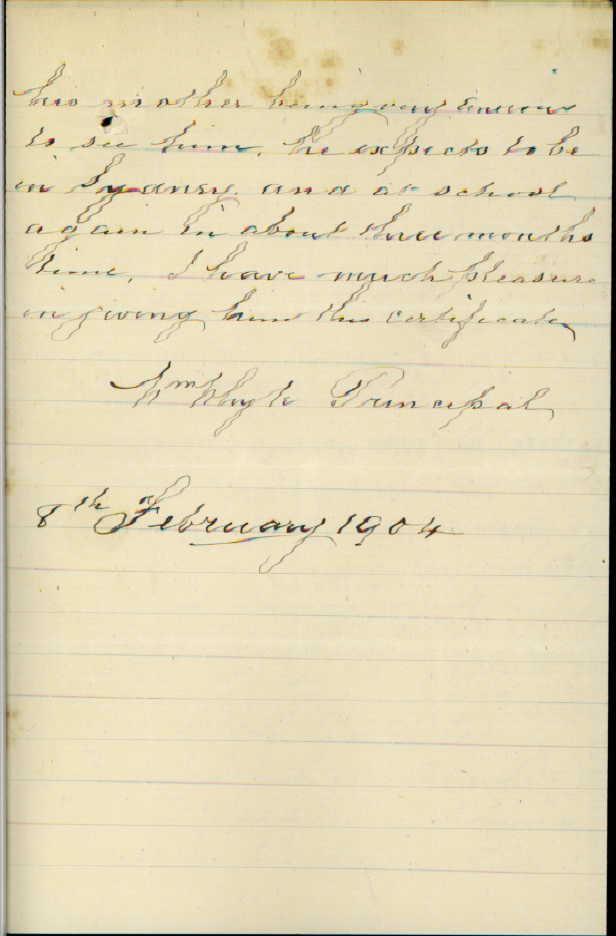 his mother being very anxious
to see him. he expects to be
in Sydney and at school
again in about three months
time, I have much pleasure
in giving him this certificate
Wm Whyte Principal
8th February 1904